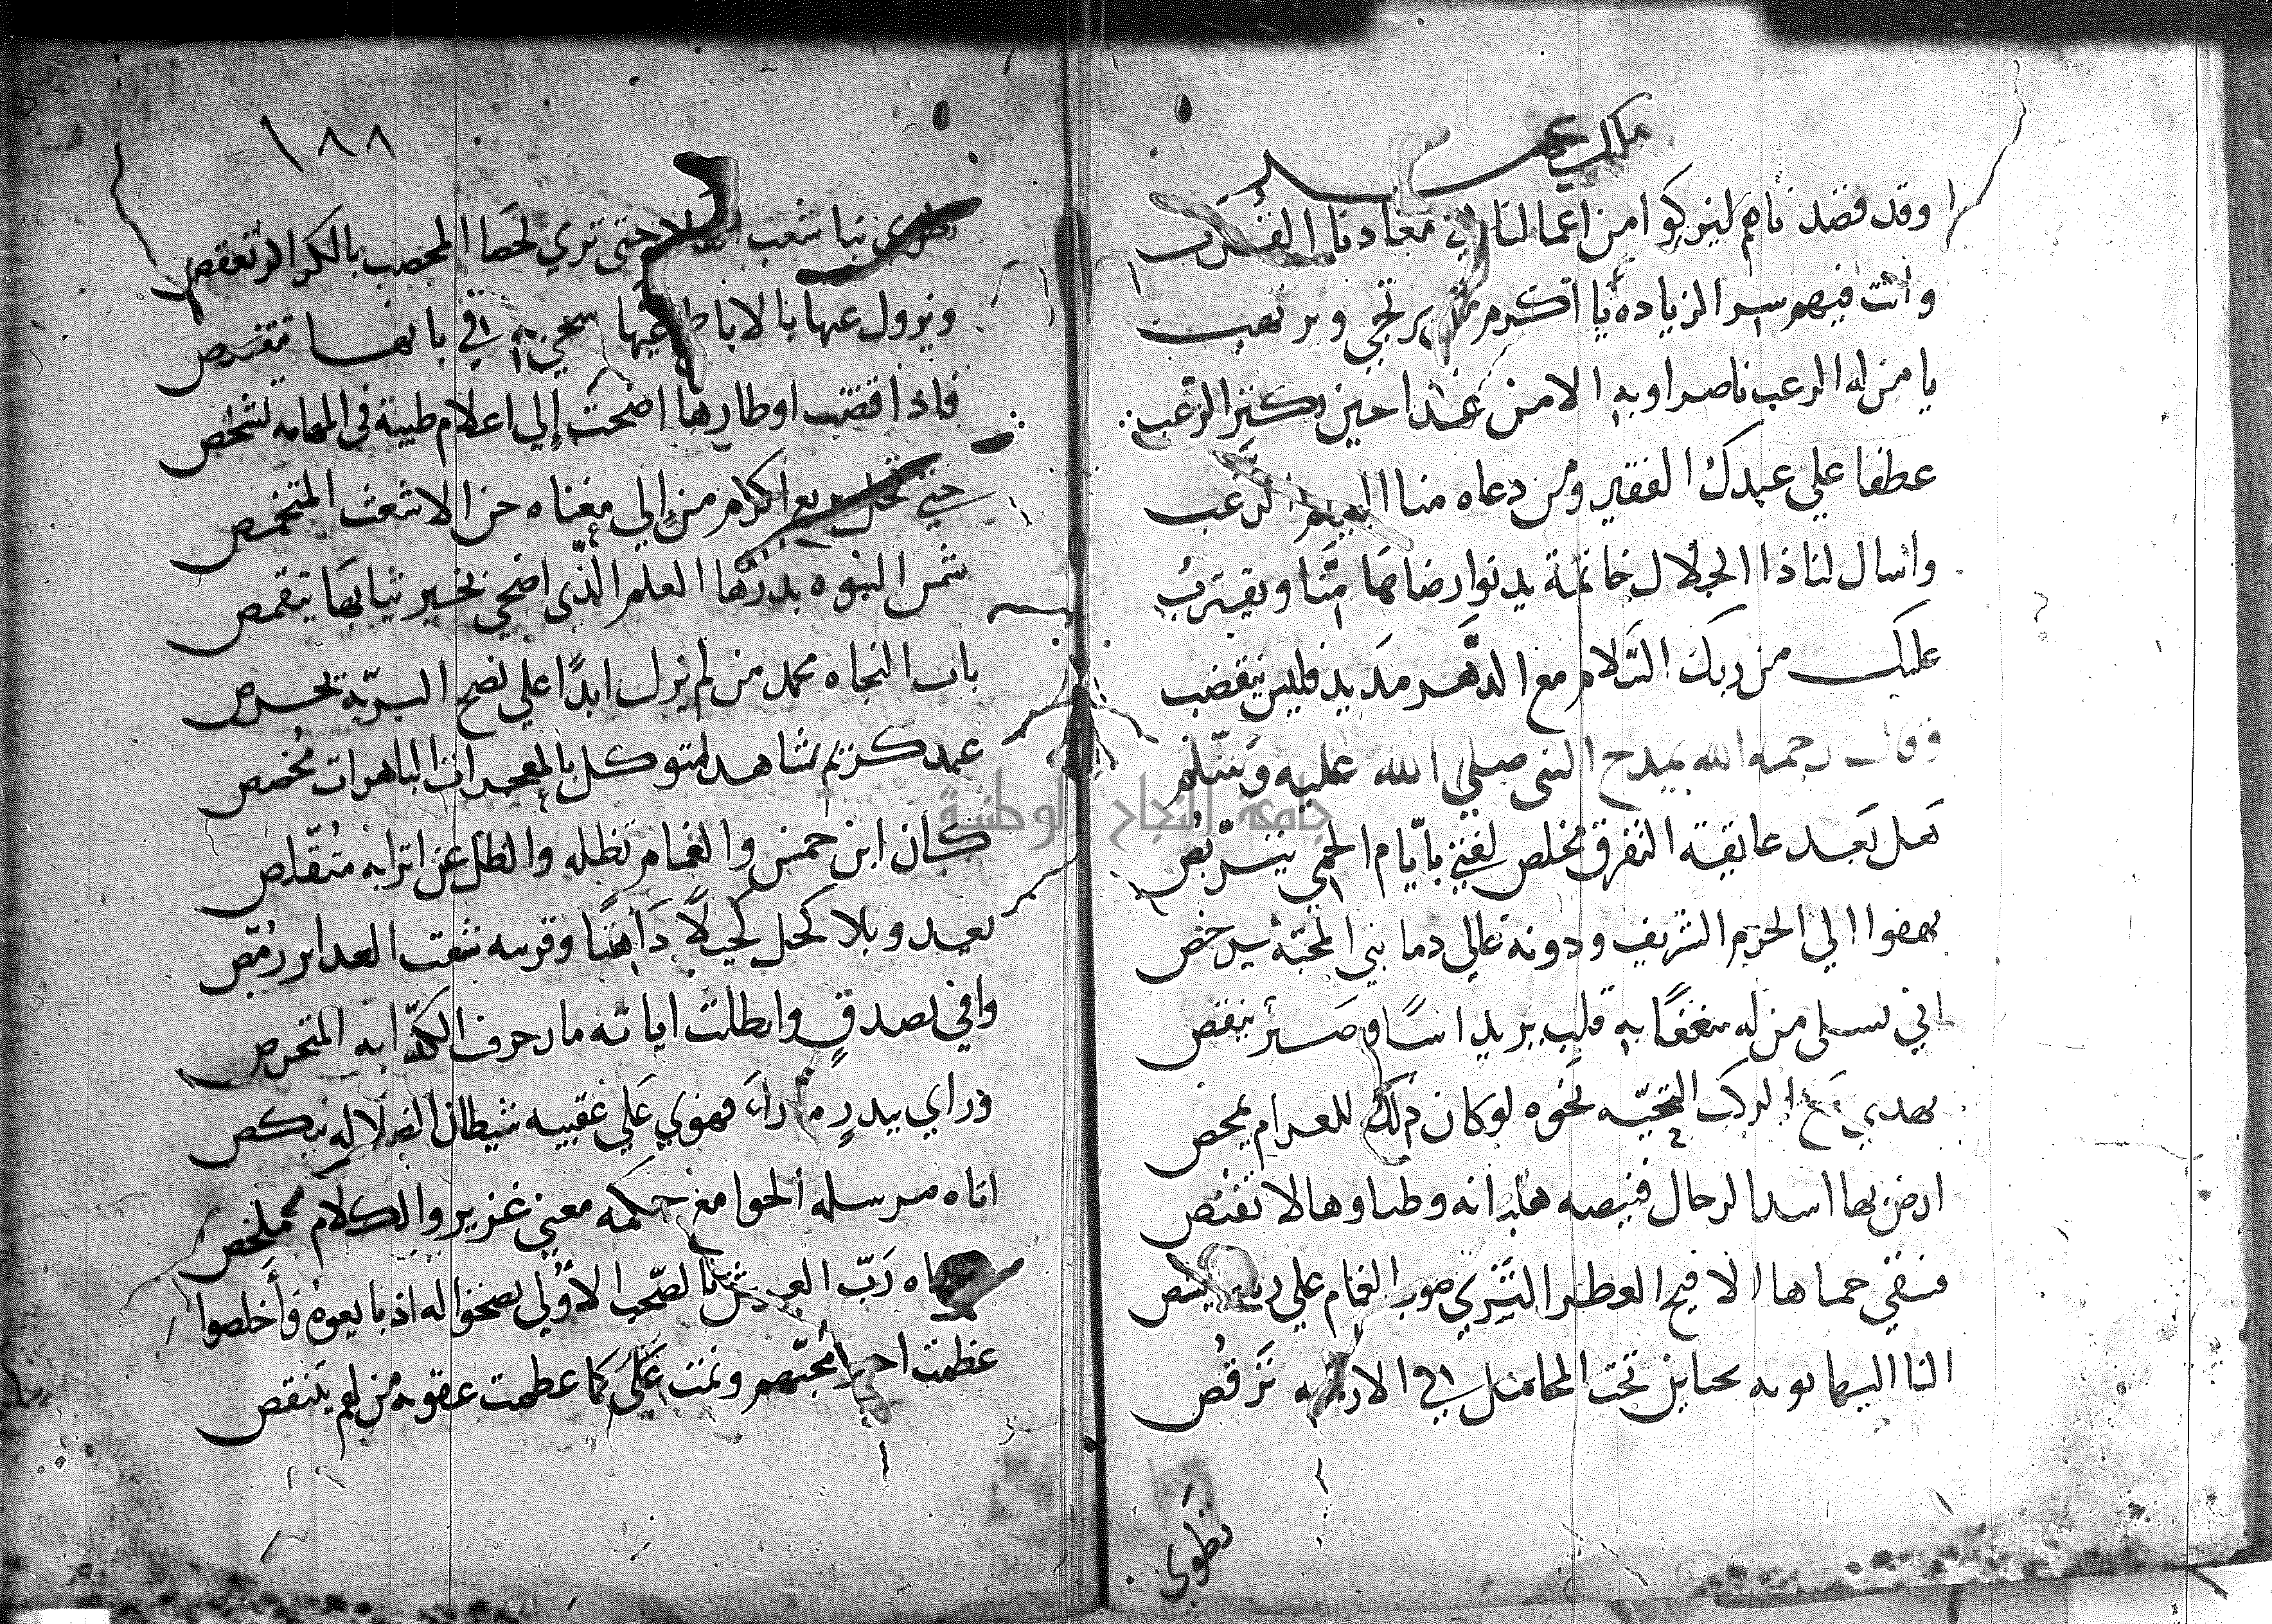 ملك
وقد قصدناهم ليزكوا من اعمالنا في معادنا القرب
وانت فيهم سر الزياده يا اكرم من يرتجى ويرتهب
يا من له الرعب ناصرا وبه الامن غدا حين يكثر الرعب
عطفا علي عبدك الفقير ومن دعاه منا اليهم الرغب
واسال لنا ذا الجلال خاتمة يدنو ارضاها منا ويقترب
عليك من ربك السلام مع الدهر مديد فليس ينقضب
وقال رحمه الله يمدح النبي صلي الله عليه وسلم
هل بعد عايقة التفرق مخلص لفتي بايام الحمي يتربص
يهفوا الي الحرم الشريف ودونه غالي دما بني المحبة يرخص
اني تسلى من له شغفا به قلب يزيد اسا وصبر ينقص
يهدي مع الركب التحيه نحوه لو كان ذلك للغرام يمحص
ارض بها اسد الرحال قنيصه وظباوها لا تقنص
فسقي حماها الافيح العطر الثري صوب الغمام علي
تحت المحامل في الازمه ترقص
تطوي
١٨٨
تطوي بنا شعب حتى تري لحصا المحصب بالكرا لا تفحص
ويزول عنها بالاباطح
فاذا قضت اوطارها اضحت إلي اعلام طيبة في المهامه تشخص
حتي تحل بربع اكرم من إلي مغناه حن الاشعث المتخمص
شمس النبوه بدرها العلم الذي اضحي بخير ثيابها يتقمص
باب النجاه محمد من لم يزل ابدا علي نصح البرية يحرص
عبد كريم شاهد متوكل بالمعجزات الباهرات مخصص
كان ابن خمس والغمام تظله والظل عن اترابه متقلص
يغدو بلا كحل كحيلا داهنا وقرينه شعث الغداير رمص
وافي بصدق وابطلت اياته ما زخرف الكذابه المتخرص
وراي ببدر ما راى فهوي علي عقبيه شيطان الضلاله ينكص
اتاه مرسله الجوامع حكمه معني غزير والكلام ملخص
رب العرش بالصحب الاولي نصحوا له اذ بايعوه واخلصوا
عظمت اجور محبهم ونمت علي كما عظمت عقوبه من لهم يتنقص
جامعة النجاح الوطنية